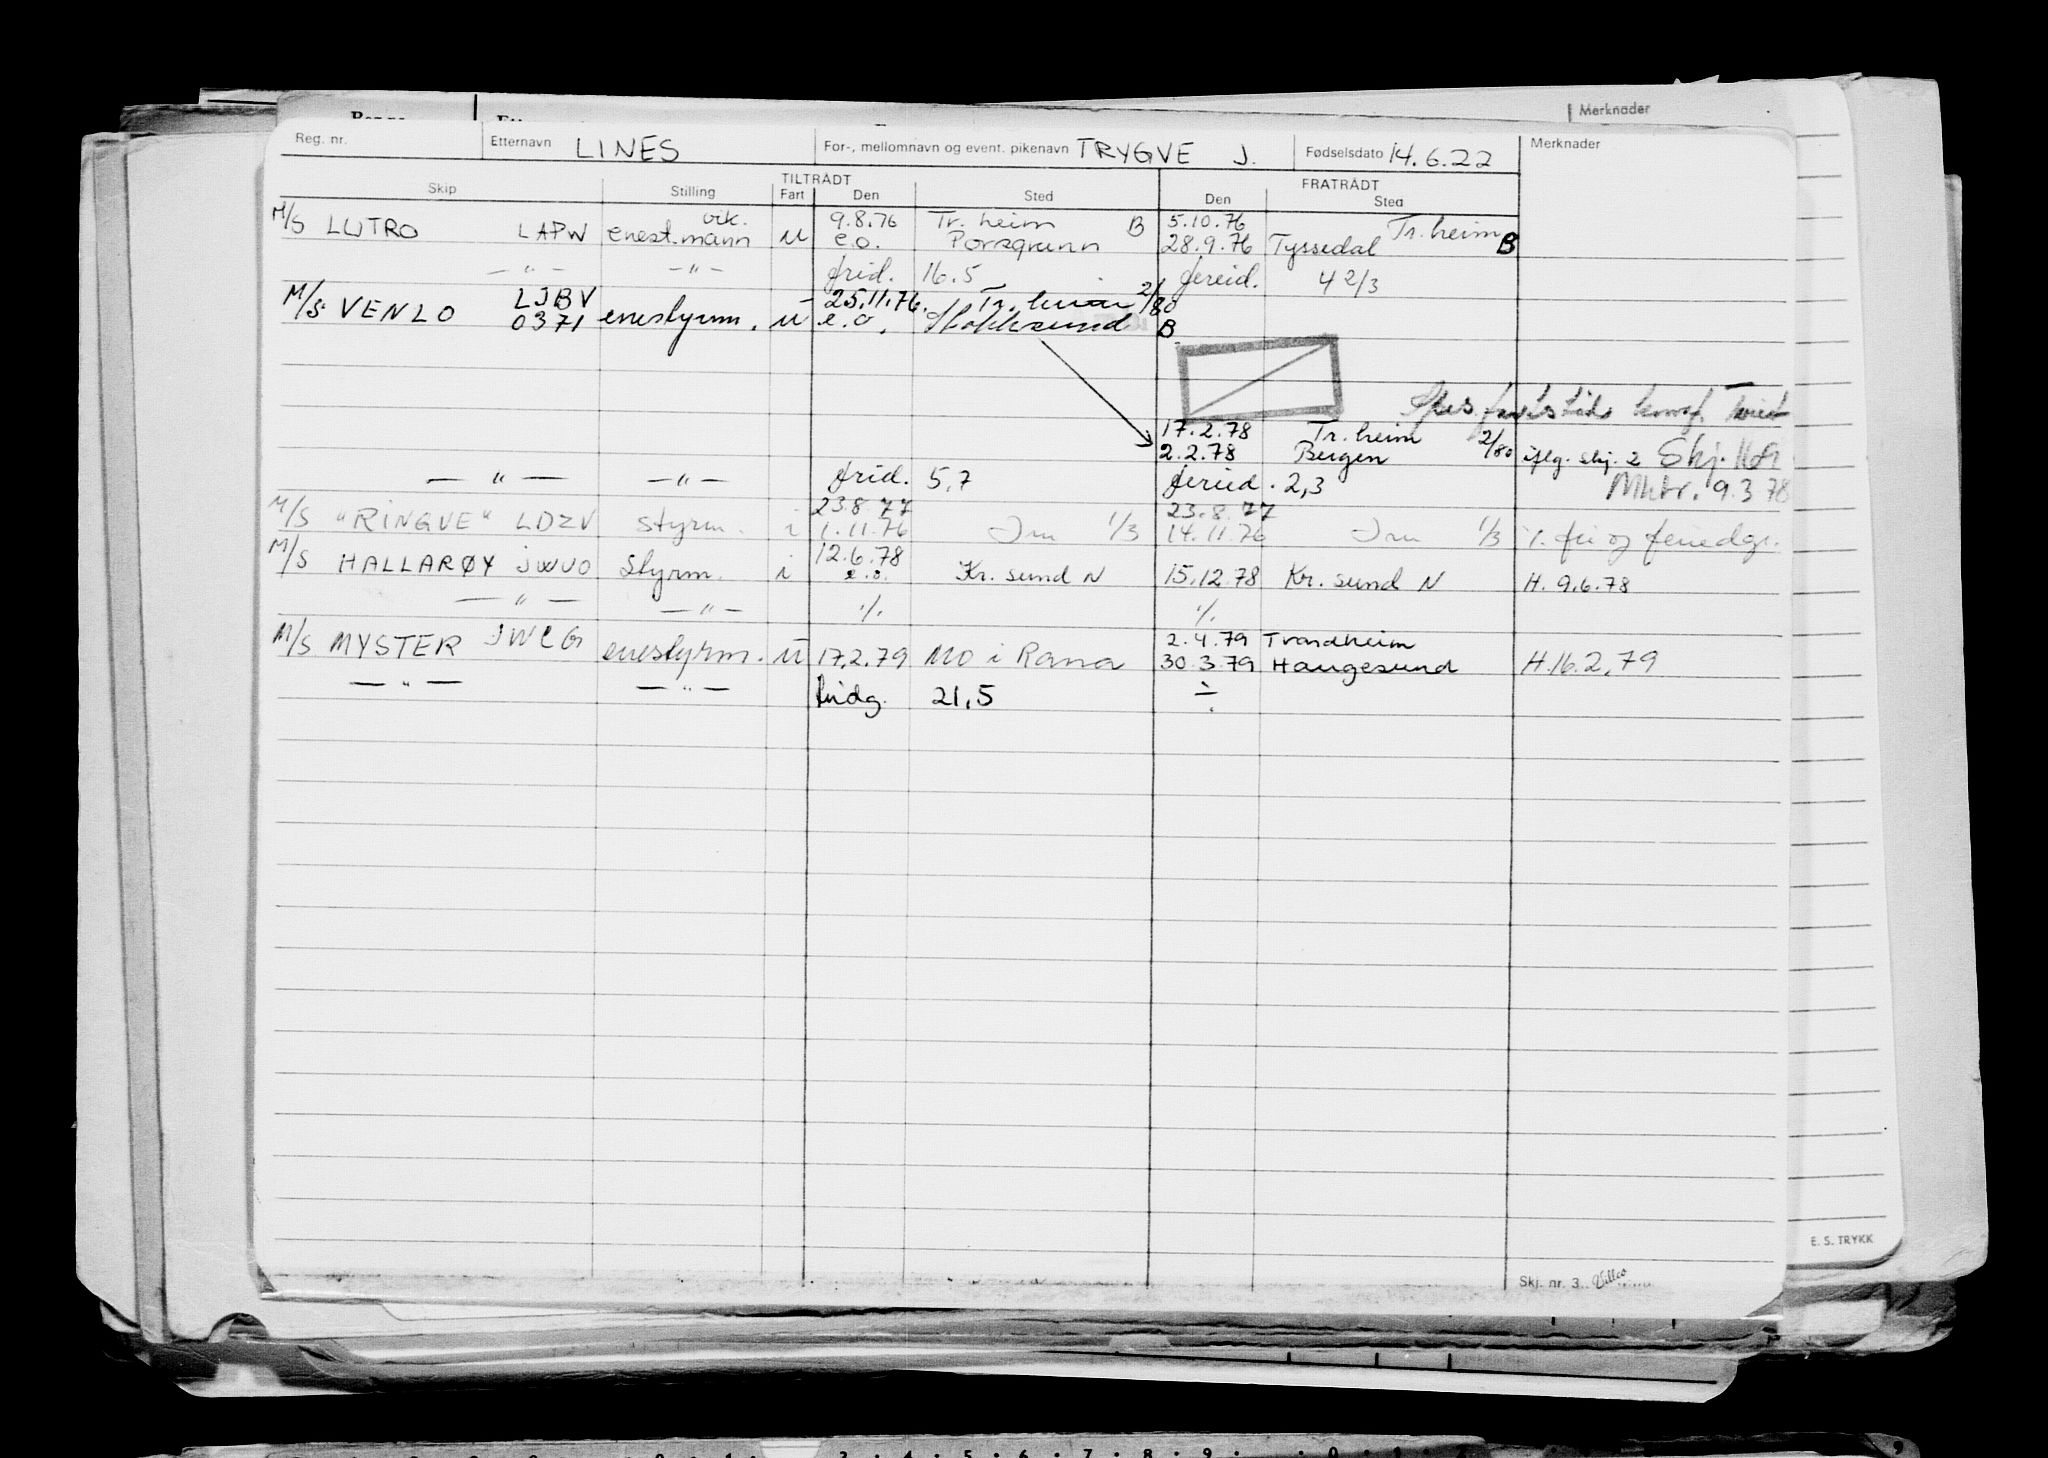 Merknader
Reg. nr. Etternavn LINES For-, mellomnavn og event. pikenavn TRYGVE J. Fødselsdato 14.6.22 Merknader
TILTRÅDT FRATRÅDT
Skip Stilling Fart Den Sted Den Sted
vik. 9.8.76 Tr. heim B 5.10.76 Tr. heim
M/S LUTRO LAPW enest.mann u e.o. Porsgrunn 28.9.76 Tyssedal B
— " — — " — frid. 16.5 fereid. 4 2/3
LJBV 25.11.76. Tr. heim 2/80
M/S VENLO 0371 enestyrm. u e.o. Stokksund B
17.2.78 Tr. heim
2.2.78 Bergen 2/80 iflg. skj. 2 Skj.
— " — — " — frid. 5,7 fereid. 2,3 9.3 78
23.8.77 23.8.77
M/S "RINGVE" LDZV styrm. i 1.11.76 1/3 14.11.76 1/3
12.6.78
M/S HALLARØY JWUO Styrm. i e.o. Kr. sund N 15.12.78 Kr. sund N H. 9.6.78
— " — — " — ./. ./.
2.4.79 Trondheim
M/S MYSTER JWCG enestyrm. u 17.2.79 Mo i Rana 30.3.79 Haugesund H.16.2.79
— " — — " — fridg. 21,5 ÷
E. S. TRYKK
Skj. nr. 3.